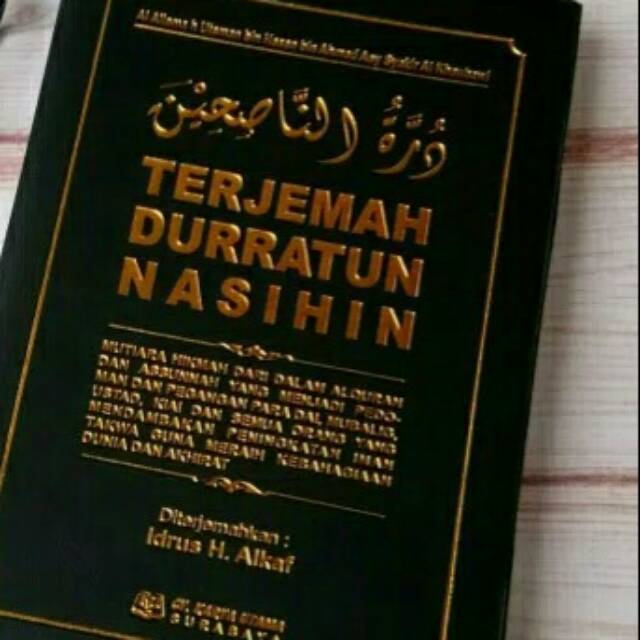 Al Allama
دُرَّةُ النَّاصِحِيْنَ
TERJEMAH
DURRATUN
NASIHIN
MUTIARA HIKMAH DARI DALAM AL QURAN
DAN YANG MENJADI PEDO
MAN DAN PEGANGAN PARA DAI, MUBALIG,
USTAD, KIAI DAN SEMUA ORANG YANG
MENDAMBAKAN PENINGKATAN IMAN
TAKWA GUNA MERAIH KEBAHAGIAAN
DUNIA DAN AKHIRAT
Diterjemahkan :
Idrus H. Alkaf
SURABAYA